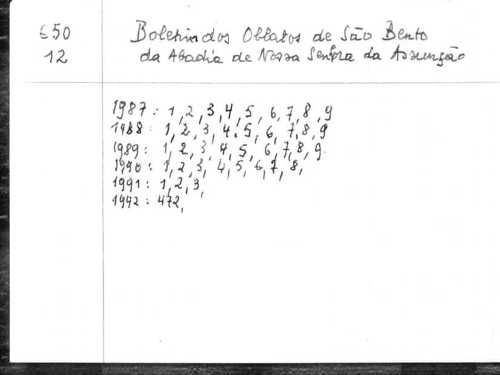 E50 Boletim dos Oblatos de São Bento
12 da Abadia de Nossa Senhora da Assunção
1987: 1, 2, 3, 4, 5, 6, 7, 8, 9
1988: 1, 2, 3, 4, 5, 6, 7, 8, 9
1989: 1, 2, 3, 4, 5, 6, 7, 8, 9
1990: 1, 2, 3, 4, 5, 6, 7, 8,
1991: 1, 2, 3,
1942: 472,